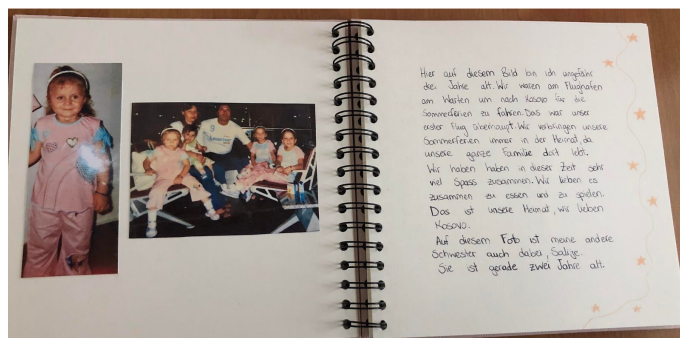 Hier auf diesem Bild bin ich ungefähr
drei Jahre alt. Wir waren am Flughafen
am Warten um nach Kosovo für die
Sommerferien zu fahren. Das war unser
erster Flug überhaupt. Wir verbringen unsere
Sommerferien immer in der Heimat, da
unsere ganze Familie dort lebt.
Wir haben haben in dieser Zeit sehr
viel Spass zusammen. Wir lieben es
zusammen zu essen und zu spielen.
Das ist unsere Heimat, wir lieben
Kosovo.
Auf diesem Foto ist meine andere
Schwester auch dabei,
Sie ist gerade zwei Jahre alt.